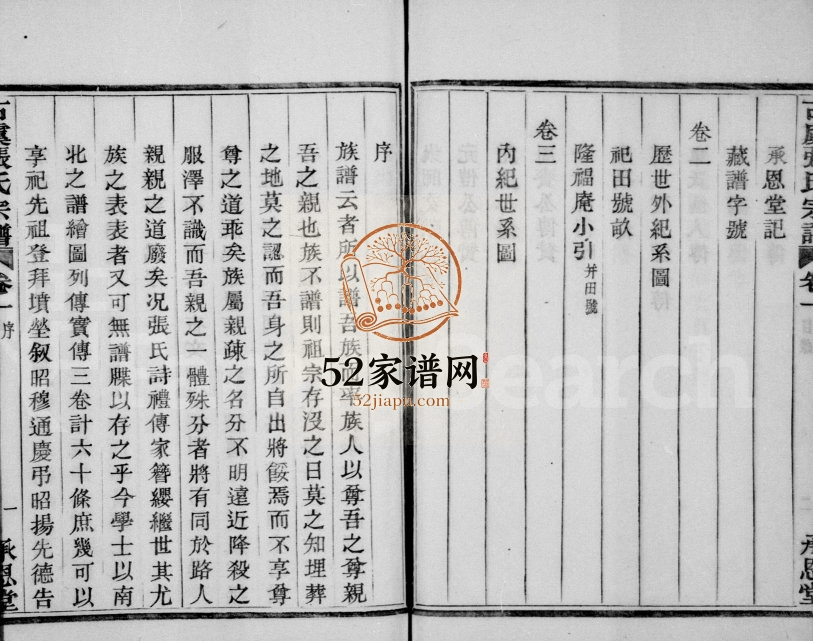 承恩堂記
藏譜字號
卷二
歷世外紀系圖
祀田號畝
隆福庵小引并田號
卷三
內紀世系圖
古虞張氏宗譜 卷一 序 一 承恩堂
序
族譜云者所以譜吾族而率族人以尊吾之尊親
吾之親也族不譜則祖宗存沒之日莫之知埋葬
之地莫之認而吾身之所自出將餒焉而不享尊
尊之道乖矣族屬親疎之名分不明遠近降殺之
服澤不識而吾親之一體殊分者將有同於路人
親親之道廢矣况張氏詩禮傳家簪纓繼世其尤
族之表表者又可無譜牒以存之乎今學士以南
北之譜繪圖列傳實傳三卷計六十條庶幾可以
享祀先祖登拜墳塋叙昭穆通慶弔昭揚先德告
古虞張氏宗譜 卷一 承恩堂
52家谱网
52jiapu.com
Search